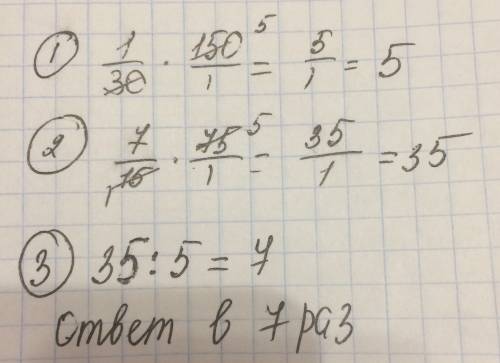 ① 1/30 · 150/1 ⁵ = 5/1 = 5
② 7/15 · 75/1 ⁵ = 35/1 = 35
③ 35 : 5 = 7
Ответ в 7 раз